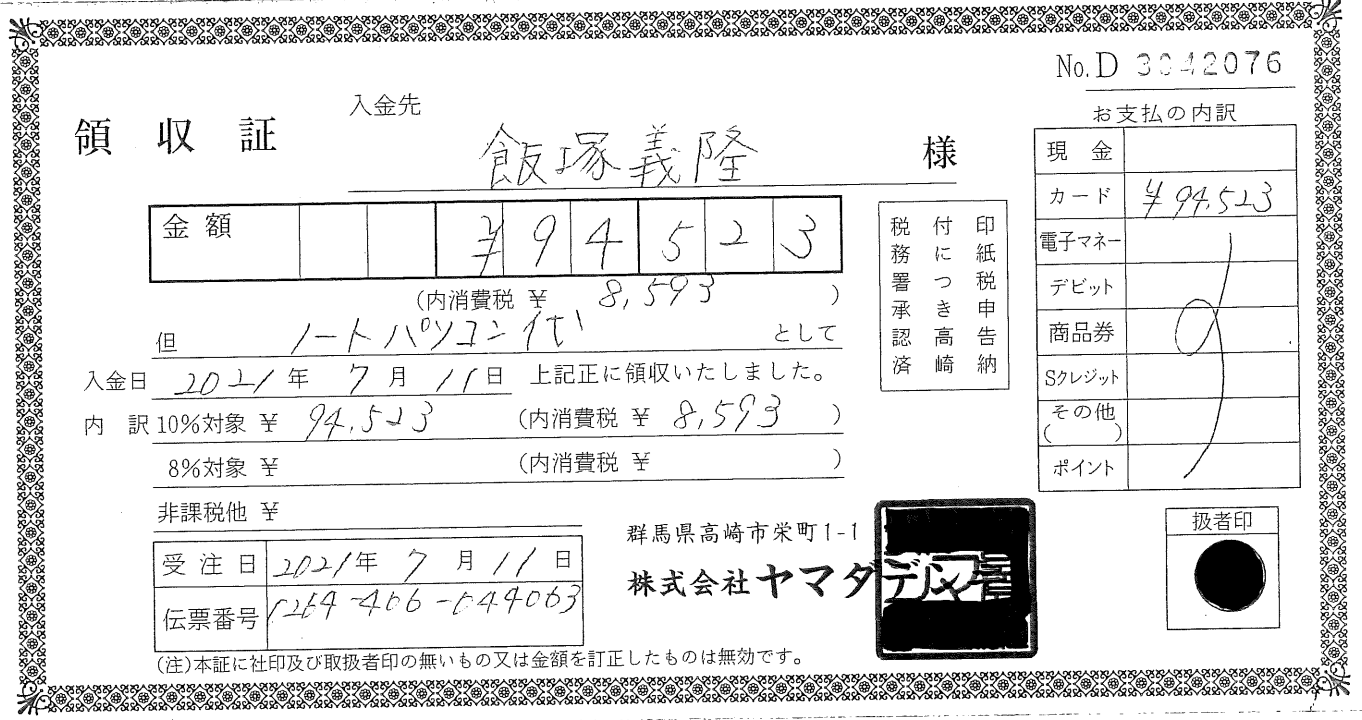 No. D 3042076
領収証
入金先
飯塚義隆 様
金額 ¥94523
(内消費税 ¥ 8,593 )
但 ノートパソコン代 として
入金日 2021年 7月 11日 上記正に領収いたしました。
内訳 10%対象 ¥ 94,523 (内消費税 ¥ 8,593 )
8%対象 ¥ (内消費税 ¥ )
非課税他 ¥
受注日 2021年 7月 11日
伝票番号 1264-406-044063
(注)本証に社印及び取扱者印の無いもの又は金額を訂正したものは無効です。
印紙税申告納
付につき高崎
税務署承認済
お支払の内訳
現金
カード ¥94,523
電子マネー
デビット
商品券
Sクレジット
その他
( )
ポイント
群馬県高崎市栄町1-1
株式会社ヤマダデンキ
扱者印